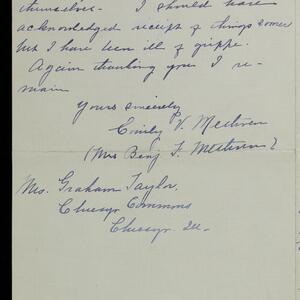 themselves - I should have
acknowledged receipt of things sooner
but I have been ill of grippe.
Again thanking you I re-
main
Yours sincerely
Emily V.
(Mrs Benj F.
Mrs. Graham Taylor,
Chicago Commons
Chicago Ill-